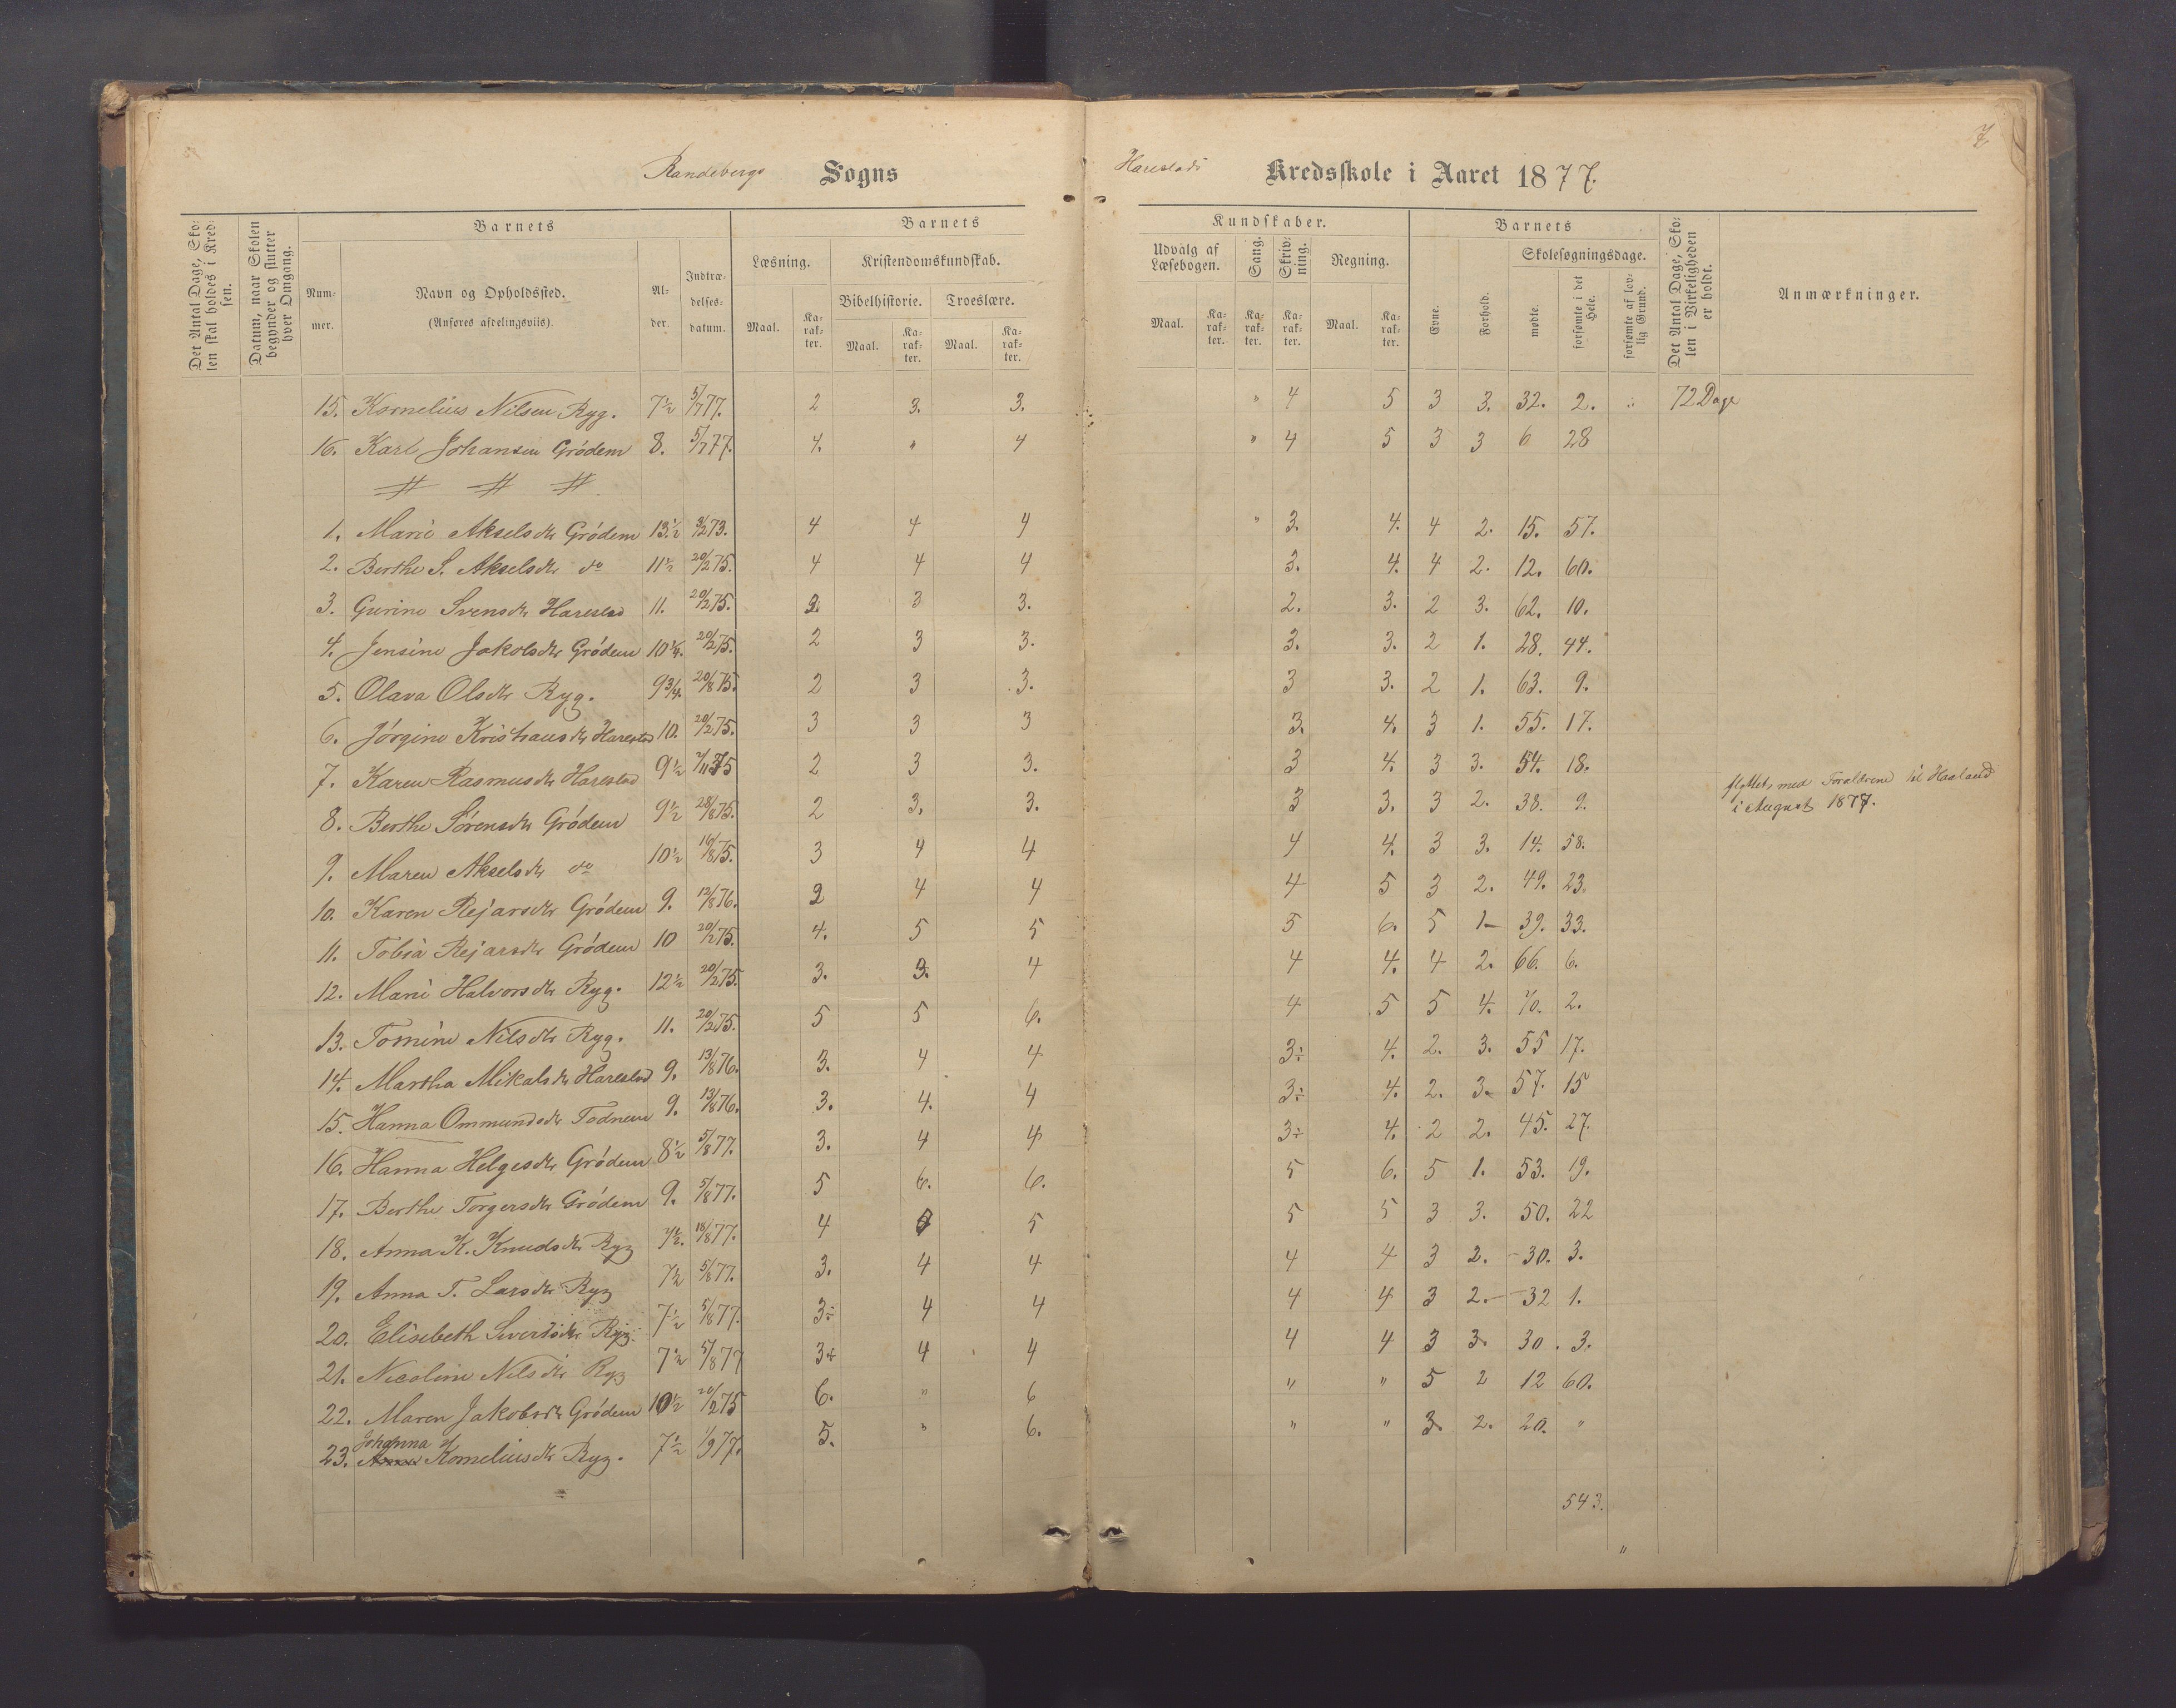 7
Randebergs Sogns Harestads Kredsskole i Aaret 1877.
Det Antal Dage, Skolen skal holdes i Kredsen.
Datum, naar Skolen begynder og slutter hver Omgang.
Barnets
Nummer.
Navn og Opholdssted.
(Anføres afdelingsviis).
Alder.
Indtrædelsesdatum.
Barnets Kundskaber.
Læsning. Maal. Karakter.
Kristendomskundskab.
Bibelhistorie. Maal. Karakter.
Troeslære. Maal. Karakter.
Udvalg af Læsebogen. Maal. Karakter.
Sang. Karakter.
Skrivning. Karakter.
Regning. Maal. Karakter.
Barnets
Evne.
Forhold.
Skolesøgningsdage.
mødte.
forsømte i det Hele.
forsømte af lovlig Grund.
Det Antal Dage, Skolen i Virkeligheden er holdt.
Anmærkninger.
15. Kornelius Nilsen Ryg. 7½ 5/7 77. 2 3. 3. " 4 5 3 3. 32. 2. " 72 Dage
16. Karl Johansen Grødem 8. 5/7 77. 4. " 4 " 4 5 3 3 6 28
1. Marie Akselsdtr Grødem 13½ 3/2 73. 4 4 4 " 3. 4. 4 2. 15. 57.
2. Berthe S. Akselsdtr do 11½ 20/2 75. 4 4 4 3. 4. 4 2. 12. 60.
3. Gurine Svensdtr Harestad 11. 20/2 75. 2 3 3. 2. 3. 2 3. 62. 10.
4. Jensine Jakobsdtr Grødem 10¼. 20/2 75. 2 3 3. 3. 3. 2 1. 28. 44.
5. Olava Olsdtr Ryg. 9¾. 20/8 75. 2 3 3. 3 3. 2 1. 63. 9.
6. Jørgine Kristiansdtr Harestad 10. 20/2 75. 3 3 3 3. 4. 3 1. 55. 17.
7. Karen Rasmusdtr Harestad 9½ 2/11 75 2 3 3. 3 4. 3 3. 54. 18.
8. Berthe Sørensdtr Grødem 9½ 28/8 75. 2 3. 3. 3 3. 3 2. 38. 9. flyttet, med Forældrene til Haaland
i August 1877.
9. Maren Akselsdtr do 10½ 16/8 75. 3 4 4 4 4. 3 3. 14. 58.
10. Karen Rejarsdtr Grødem 9. 12/8 76. 2 4 4 4 5 3 2. 49. 23.
11. Tobia Rejarsdtr Grødem 10 20/2 75. 4. 5 5 5 6. 5 1 39. 33.
12. Mari Halvorsdtr Ryg. 12½ 20/2 75. 3. 3. 4 4 4. 4 2. 66. 6.
13. Tomine Nilsdtr Ryg. 11. 20/2 75. 5 5 6. 4 5 5 4. 70. 2.
14. Martha Mikalsdtr Harestad 9. 13/8 76. 3. 4 4 3÷ 4. 2. 3. 55 17.
15. Hanna Ommundsdtr Todnem 9. 13/8 76. 3. 4. 4 3÷ 4. 2. 3. 57. 15
16. Hanna Helgesdtr Grødem 8½ 5/8 77. 3. 4 4 3÷ 4. 2 2. 45. 27.
17. Berthe Torgersdtr Grødem 9. 5/8 77. 5 6. 6. 5 6. 5 1. 53. 19.
18. Anna K. Knudsdtr Ryg 7½. 18/8 77. 4 5 5 5 3 3. 50. 22
19. Anna T. Larsdtr Ryg 7½ 5/8 77. 3. 4 4 4 4 3 2. 30. 3.
20. Elisebeth Sivertsdtr Ryg. 7½ 5/8 77. 3÷ 4 4 4 4 3 2. 32 1.
21. Nicoline Nilsdtr Ryg 7½ 5/8 77 3÷ 4 4 4 4 3 3. 30. 3.
22. Maren Jakobsdtr Grødem 10½ 20/2 75 6. " 6 " " 5 2 12 60.
23. Johanna Korneliusdtr Ryg. 7½ 1/9 77. 5. " 6. " " 3. 2. 20. "
543.
"